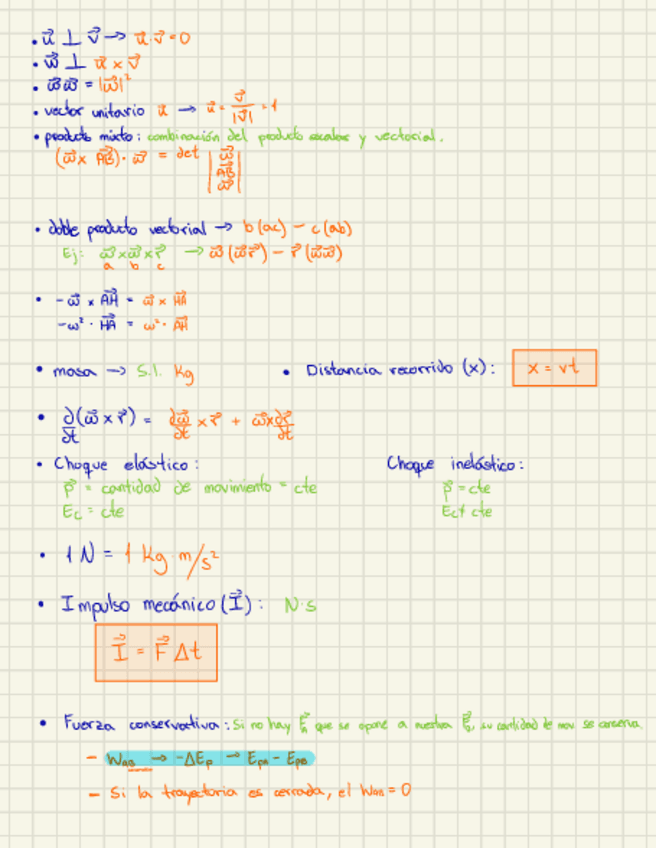 • u⃗ ⊥ v⃗ → u⃗·v⃗=0
• w⃗ ⊥ u⃗ x v⃗
• w⃗w⃗ = |w⃗|²
• vector unitario u⃗ → u⃗ = v⃗/|v⃗| = 1
• producto mixto: combinación del producto escalar y vectorial.
(w⃗x AB⃗)· w⃗ = det | w⃗ AB⃗ w⃗ |
• doble producto vectorial → b(ac) - c(ab)
Ej: w⃗xw⃗xr⃗ → w⃗(w⃗r⃗) - r⃗(w⃗w⃗)
a b c
• -w⃗ x AH⃗ = w⃗ x HA⃗
-w²· HA⃗ = w²· AH⃗
• masa → S.I. Kg • Distancia recorrido (x): x = vt
• ∂(w⃗ x r⃗)/∂t = ∂w⃗/∂t x r⃗ + w⃗x∂r⃗/∂t
• Choque elástico: Choque inelástico:
p⃗ = cantidad de movimiento = cte p⃗ = cte
Ec = cte Ec≠ cte
• 1 N = 1 Kg·m/s²
• Impulso mecánico (I⃗): N·s
I⃗ = F⃗ Δt
• Fuerza conservativa: Si no hay que se opone a nuestra su cantidad de mov se conserva.
- W_AB → -ΔEp → EpA - EpB
- Si la trayectoria es cerrada, el W_AB = 0